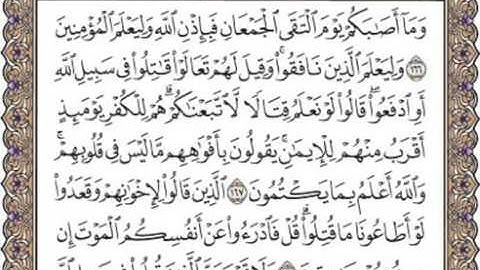 وَمَآ أَصَٰبَكُمْ يَوْمَ ٱلْتَقَى ٱلْجَمْعَانِ فَبِإِذْنِ ٱللَّهِ وَلِيَعْلَمَ ٱلْمُؤْمِنِينَ
١٦٦ وَلِيَعْلَمَ ٱلَّذِينَ نَافَقُوا۟ ۚ وَقِيلَ لَهُمْ تَعَالَوْا۟ قَٰتِلُوا۟ فِى سَبِيلِ ٱللَّهِ
أَوِ ٱدْفَعُوا۟ ۖ قَالُوا۟ لَوْ نَعْلَمُ قِتَالًا لَّٱتَّبَعْنَٰكُمْ ۗ هُمْ لِلْكُفْرِ يَوْمَئِذٍ
أَقْرَبُ مِنْهُمْ لِلْإِيمَٰنِ ۚ يَقُولُونَ بِأَفْوَٰهِهِم مَّا لَيْسَ فِى قُلُوبِهِمْ ۗ
وَٱللَّهُ أَعْلَمُ بِمَا يَكْتُمُونَ ١٦٧ ٱلَّذِينَ قَالُوا۟ لِإِخْوَٰنِهِمْ وَقَعَدُوا۟
لَوْ أَطَاعُونَا مَا قُتِلُوا۟ ۗ قُلْ فَٱدْرَءُوا۟ عَنْ أَنفُسِكُمُ ٱلْمَوْتَ إِن